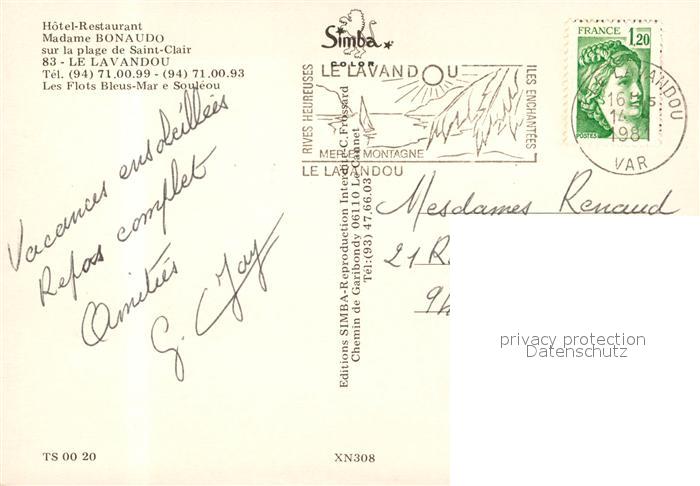 Hôtel-Restaurant
Madame BONAUDO
sur la plage de Saint-Clair
83 - LE LAVANDOU
Tél. (94) 71.00.99 - (94) 71.00.93
Les Flots Bleus-Mar e Souléou
Simba
COLOR
RIVES HEUREUSES
LE LAVANDOU
ILES ENCHANTÉES
MER ET MONTAGNE
LE LAVANDOU
FRANCE
1,20
POSTES
LAVANDOU
16 H
14
198
VAR
Vacances ensoleillées
Repos complet
Amitiés
G.
Mesdames Renaud
21 R
94
Editions SIMBA-Reproduction Interdite C. Frossard
Chemin de Garibondy 06110 Le Cannet
Tél:(93) 47.66.03
privacy protection
Datenschutz
TS 00 20
XN308